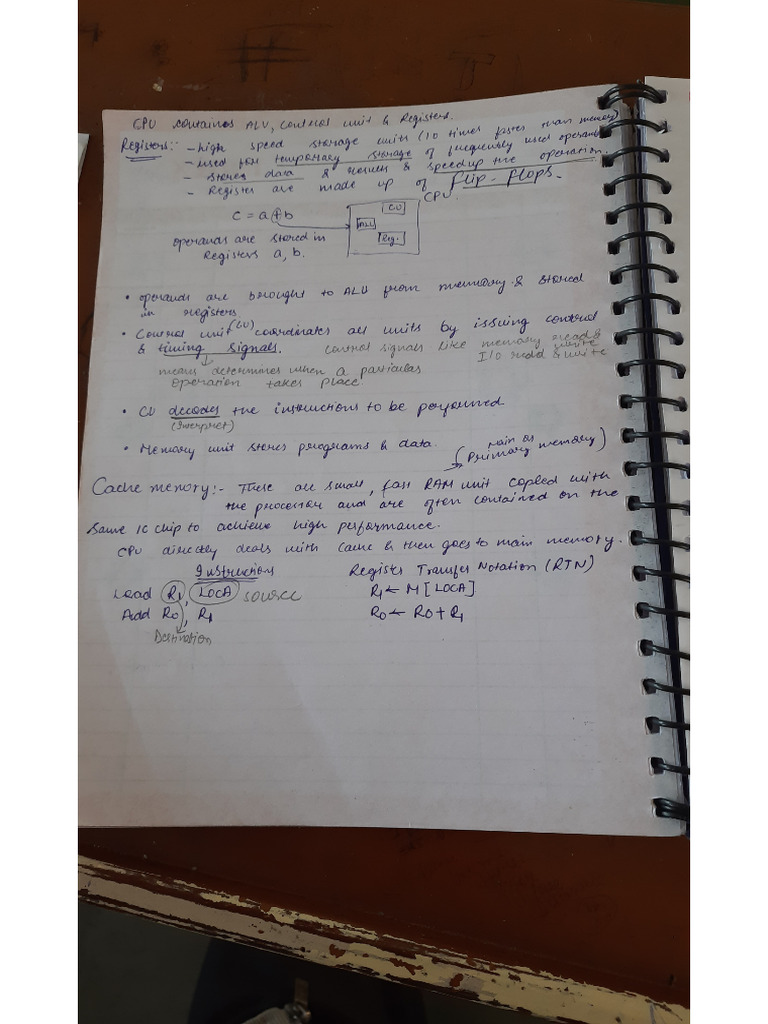 CPU contains ALU, control unit & Registers.
Registers:- - high speed storage units (10 times faster than memory)
- used for temporary storage of frequently used operands
- stores data & results & speedup the operation.
- Register are made up of flip-flops.
CPU
c = a+b
CU
ALU
Reg.
operands are stored in
Registers a, b.
• operands are brought to ALU from memory & stored
in registers.
• Control unit (CU) coordinates all units by issuing control
& timing signals. Control signals like memory read & write
I/O read & write
means determines when a particular
operation takes place
• CU decodes the instructions to be performed
(interpret)
• Memory unit stores programs & data. (main or
Primary memory)
Cache memory:- These are small, fast RAM unit copled with
the processor and are often contained on the
same IC chip to achieve high performance.
CPU directly deals with cache & then goes to main memory.
Instructions Register Transfer Notation (RTN)
Load R1, LOCA source R1 ← M [LOCA]
Add R0, R1 R0 ← R0 + R1
Destination